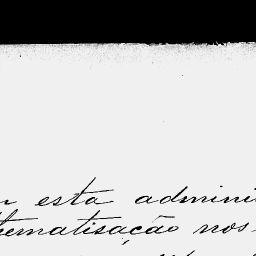 esta admini
tematisação nos